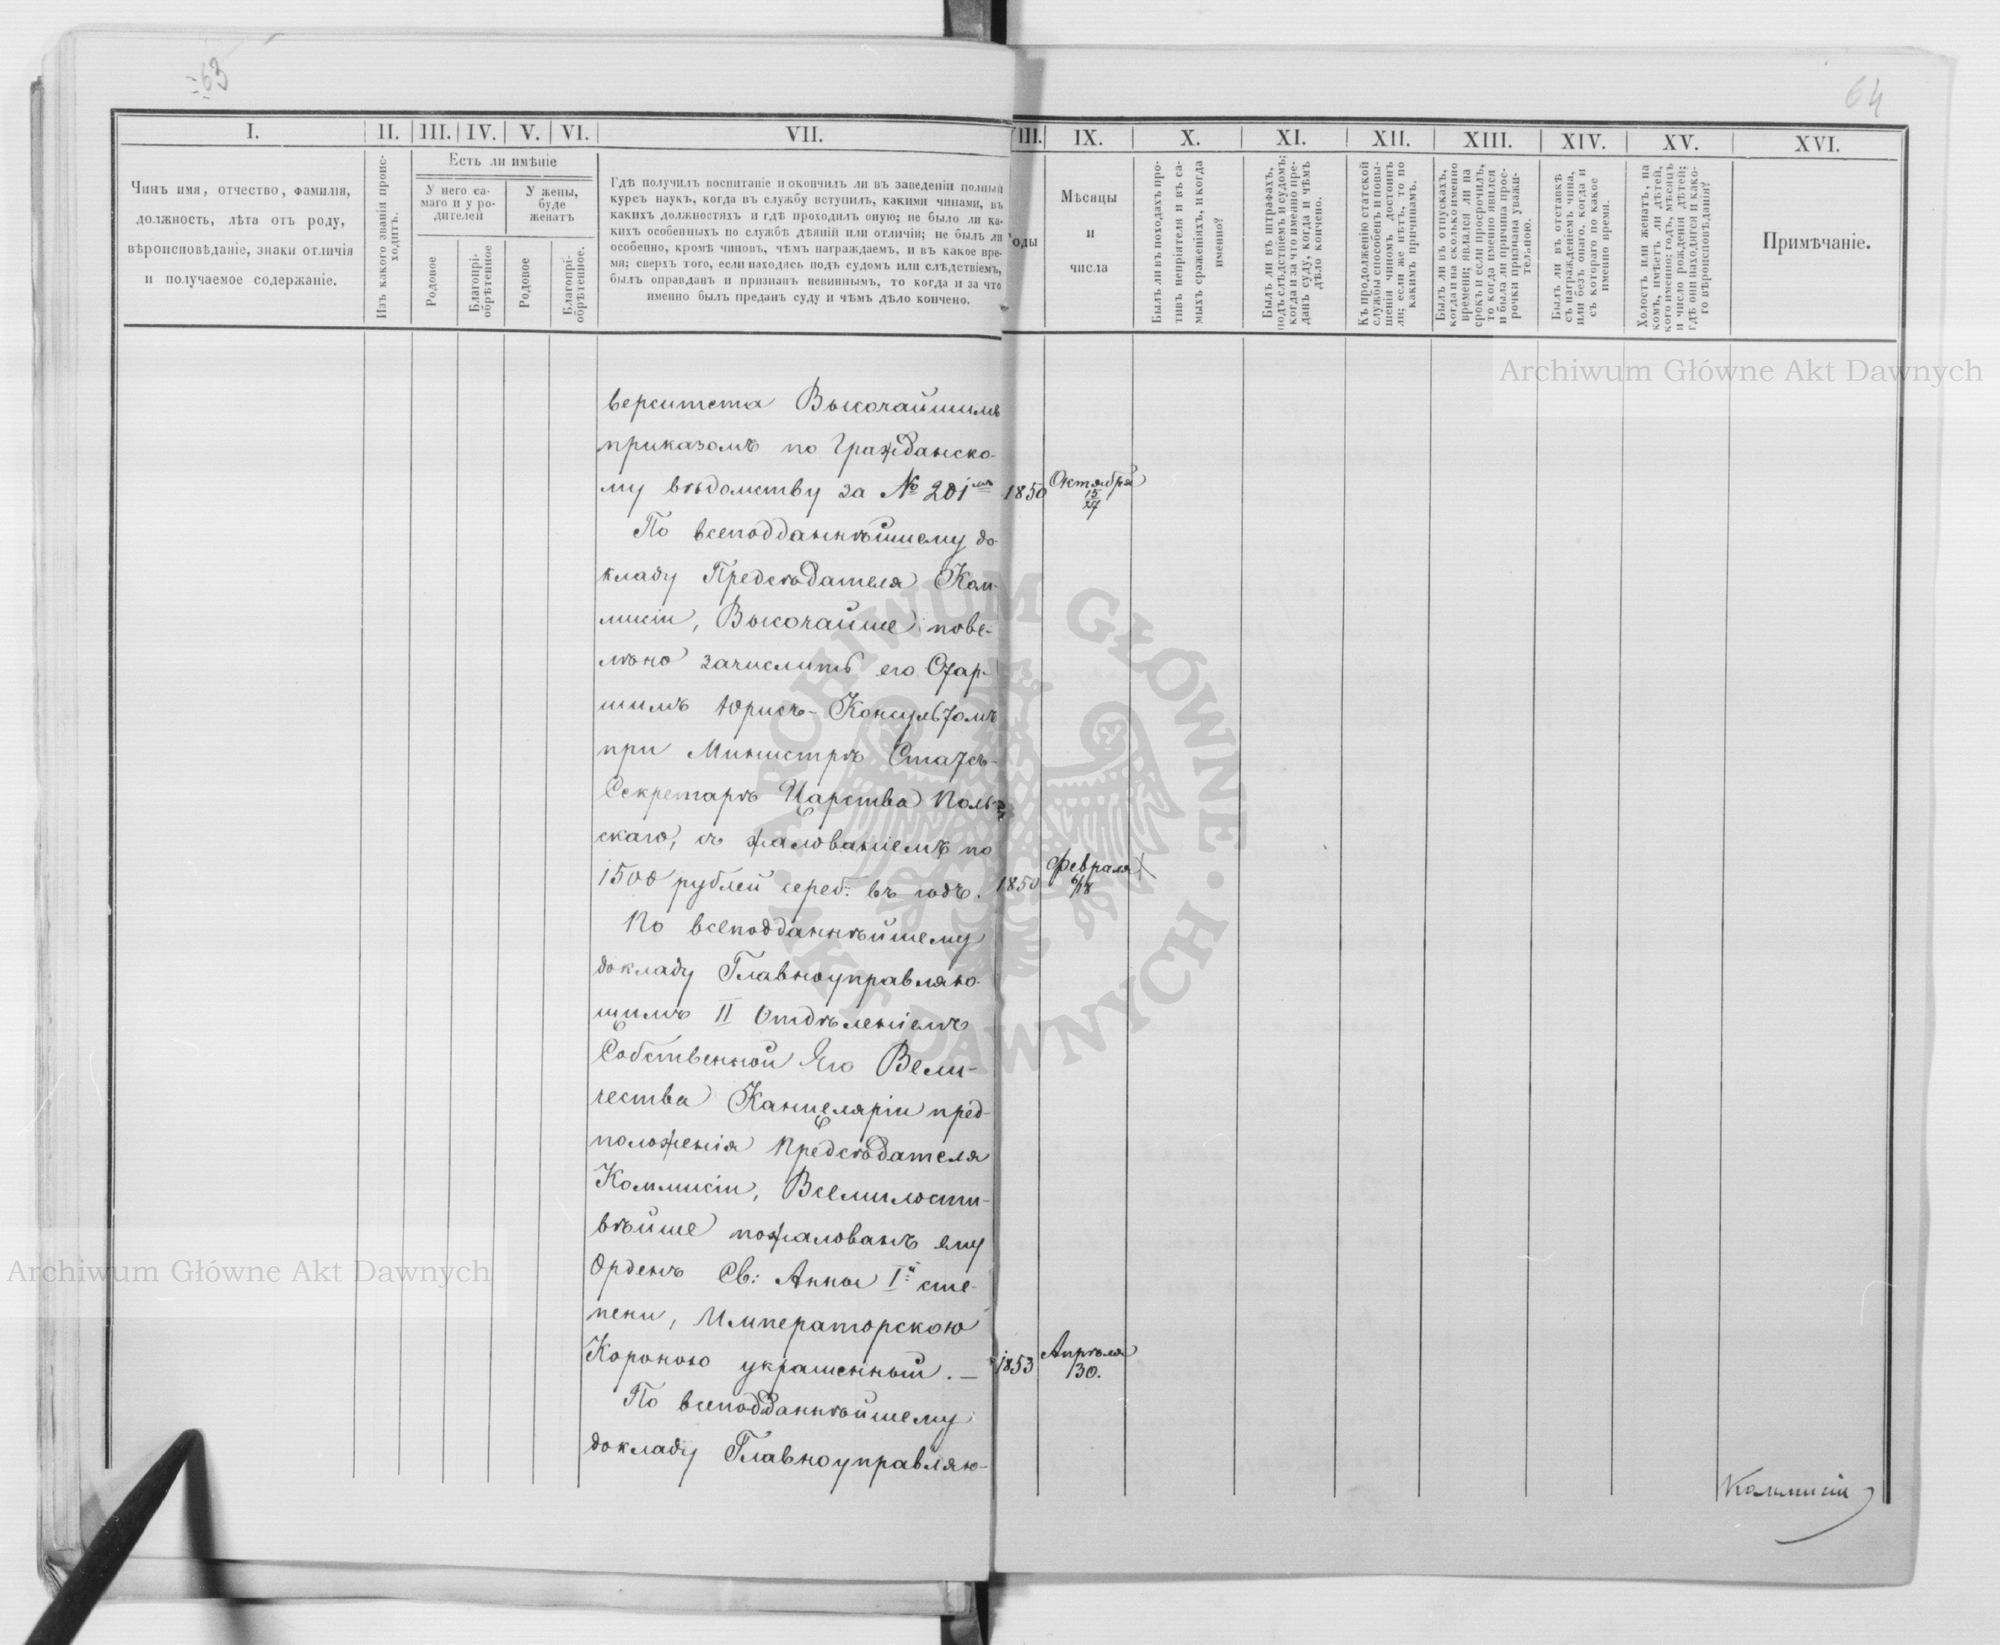 63
64
I.
II.
III.
IV.
V.
VI.
VII.
VIII.
IX.
X.
XI.
XII.
XIII.
XIV.
XV.
XVI.
Чинъ имя, отчество, фамилія,
должность, лѣта отъ роду,
вѣроисповѣданіе, знаки отличія
и получаемое содержаніе.
Изъ какого званія проис-
ходитъ.
Есть ли имѣніе
У него са-
маго и у ро-
дителей
У жены,
буде
женатъ
Родовое
Благопрі-
обрѣтенное
Родовое
Благопрі-
обрѣтенное.
Гдѣ получилъ воспитаніе и окончилъ ли въ заведеніи полный
курсъ наукъ, когда въ службу вступилъ, какими чинами, въ
какихъ должностяхъ и гдѣ проходилъ оную; не было ли ка-
кихъ особенныхъ по службѣ дѣяній или отличій; не былъ ли
особенно, кромѣ чиновъ, чѣмъ награждаемъ, и въ какое вре-
мя; сверхъ того, если находясь подъ судомъ или слѣдствіемъ,
былъ оправданъ и признанъ невиннымъ, то когда и за что
именно былъ преданъ суду и чѣмъ дѣло кончено.
Годы
Мѣсяцы
и
числа
Былъ ли въ походахъ про-
тивъ непріятеля и въ са-
мыхъ сраженіяхъ, и когда
именно?
Былъ ли въ штрафахъ,
подъ слѣдствіемъ и судомъ;
когда и за что именно пре-
данъ суду, когда и чѣмъ
дѣло кончено.
Къ продолженію статской
службы способенъ и повы-
шенія чиномъ достоинъ
ли; если же нѣтъ, то по
какимъ причинамъ.
Былъ ли въ отпускахъ,
когда и на сколько именно
времени; явился ли на
срокъ и если просрочилъ,
то когда именно явился
и была ли причина прос-
рочки признана уважи-
тельною.
Былъ ли въ отставкѣ
съ награжденіемъ чина,
или безъ онаго, когда и
съ котораго по какое
именно время.
Холостъ или женатъ, на
комъ, имѣетъ ли дѣтей,
кого именно; годъ, мѣсяцъ
и число рожденія дѣтей;
гдѣ они находятся и како-
го вѣроисповѣданія?
Примѣчаніе.
верситета Высочайшимъ
приказомъ по Гражданско-
му вѣдомству за № 201мъ 1850 Октября 15/27
По всеподданнѣйшему до-
кладу Предсѣдателя Ком-
мисіи, Высочайше пове-
лѣно зачислить его Стар-
шимъ Юрисъ-Консультомъ
при Министрѣ Статсъ-
Секретарѣ Царства Поль-
скаго, съ жалованіемъ по
1500 рублей сереб: въ годъ. 1850 Февраля 6/18
По всеподданнѣйшему
докладу Главноуправляю-
щимъ II Отдѣленіемъ
Собственной Его Вели-
чества Канцеляріи пред-
положенія Предсѣдателя
Коммисіи, Всемилости-
вѣйше пожалованъ ему
Орденъ Св: Анны Iй сте-
пени, Императорскою
Короною украшенный. — 1853 Апрѣля 30.
По всеподданнѣйшему
докладу Главноуправляю-
Коммисіи
Archiwum Główne Akt Dawnych
Archiwum Główne Akt Dawnych
ARCHIWUM GŁÓWNE AKT DAWNYCH